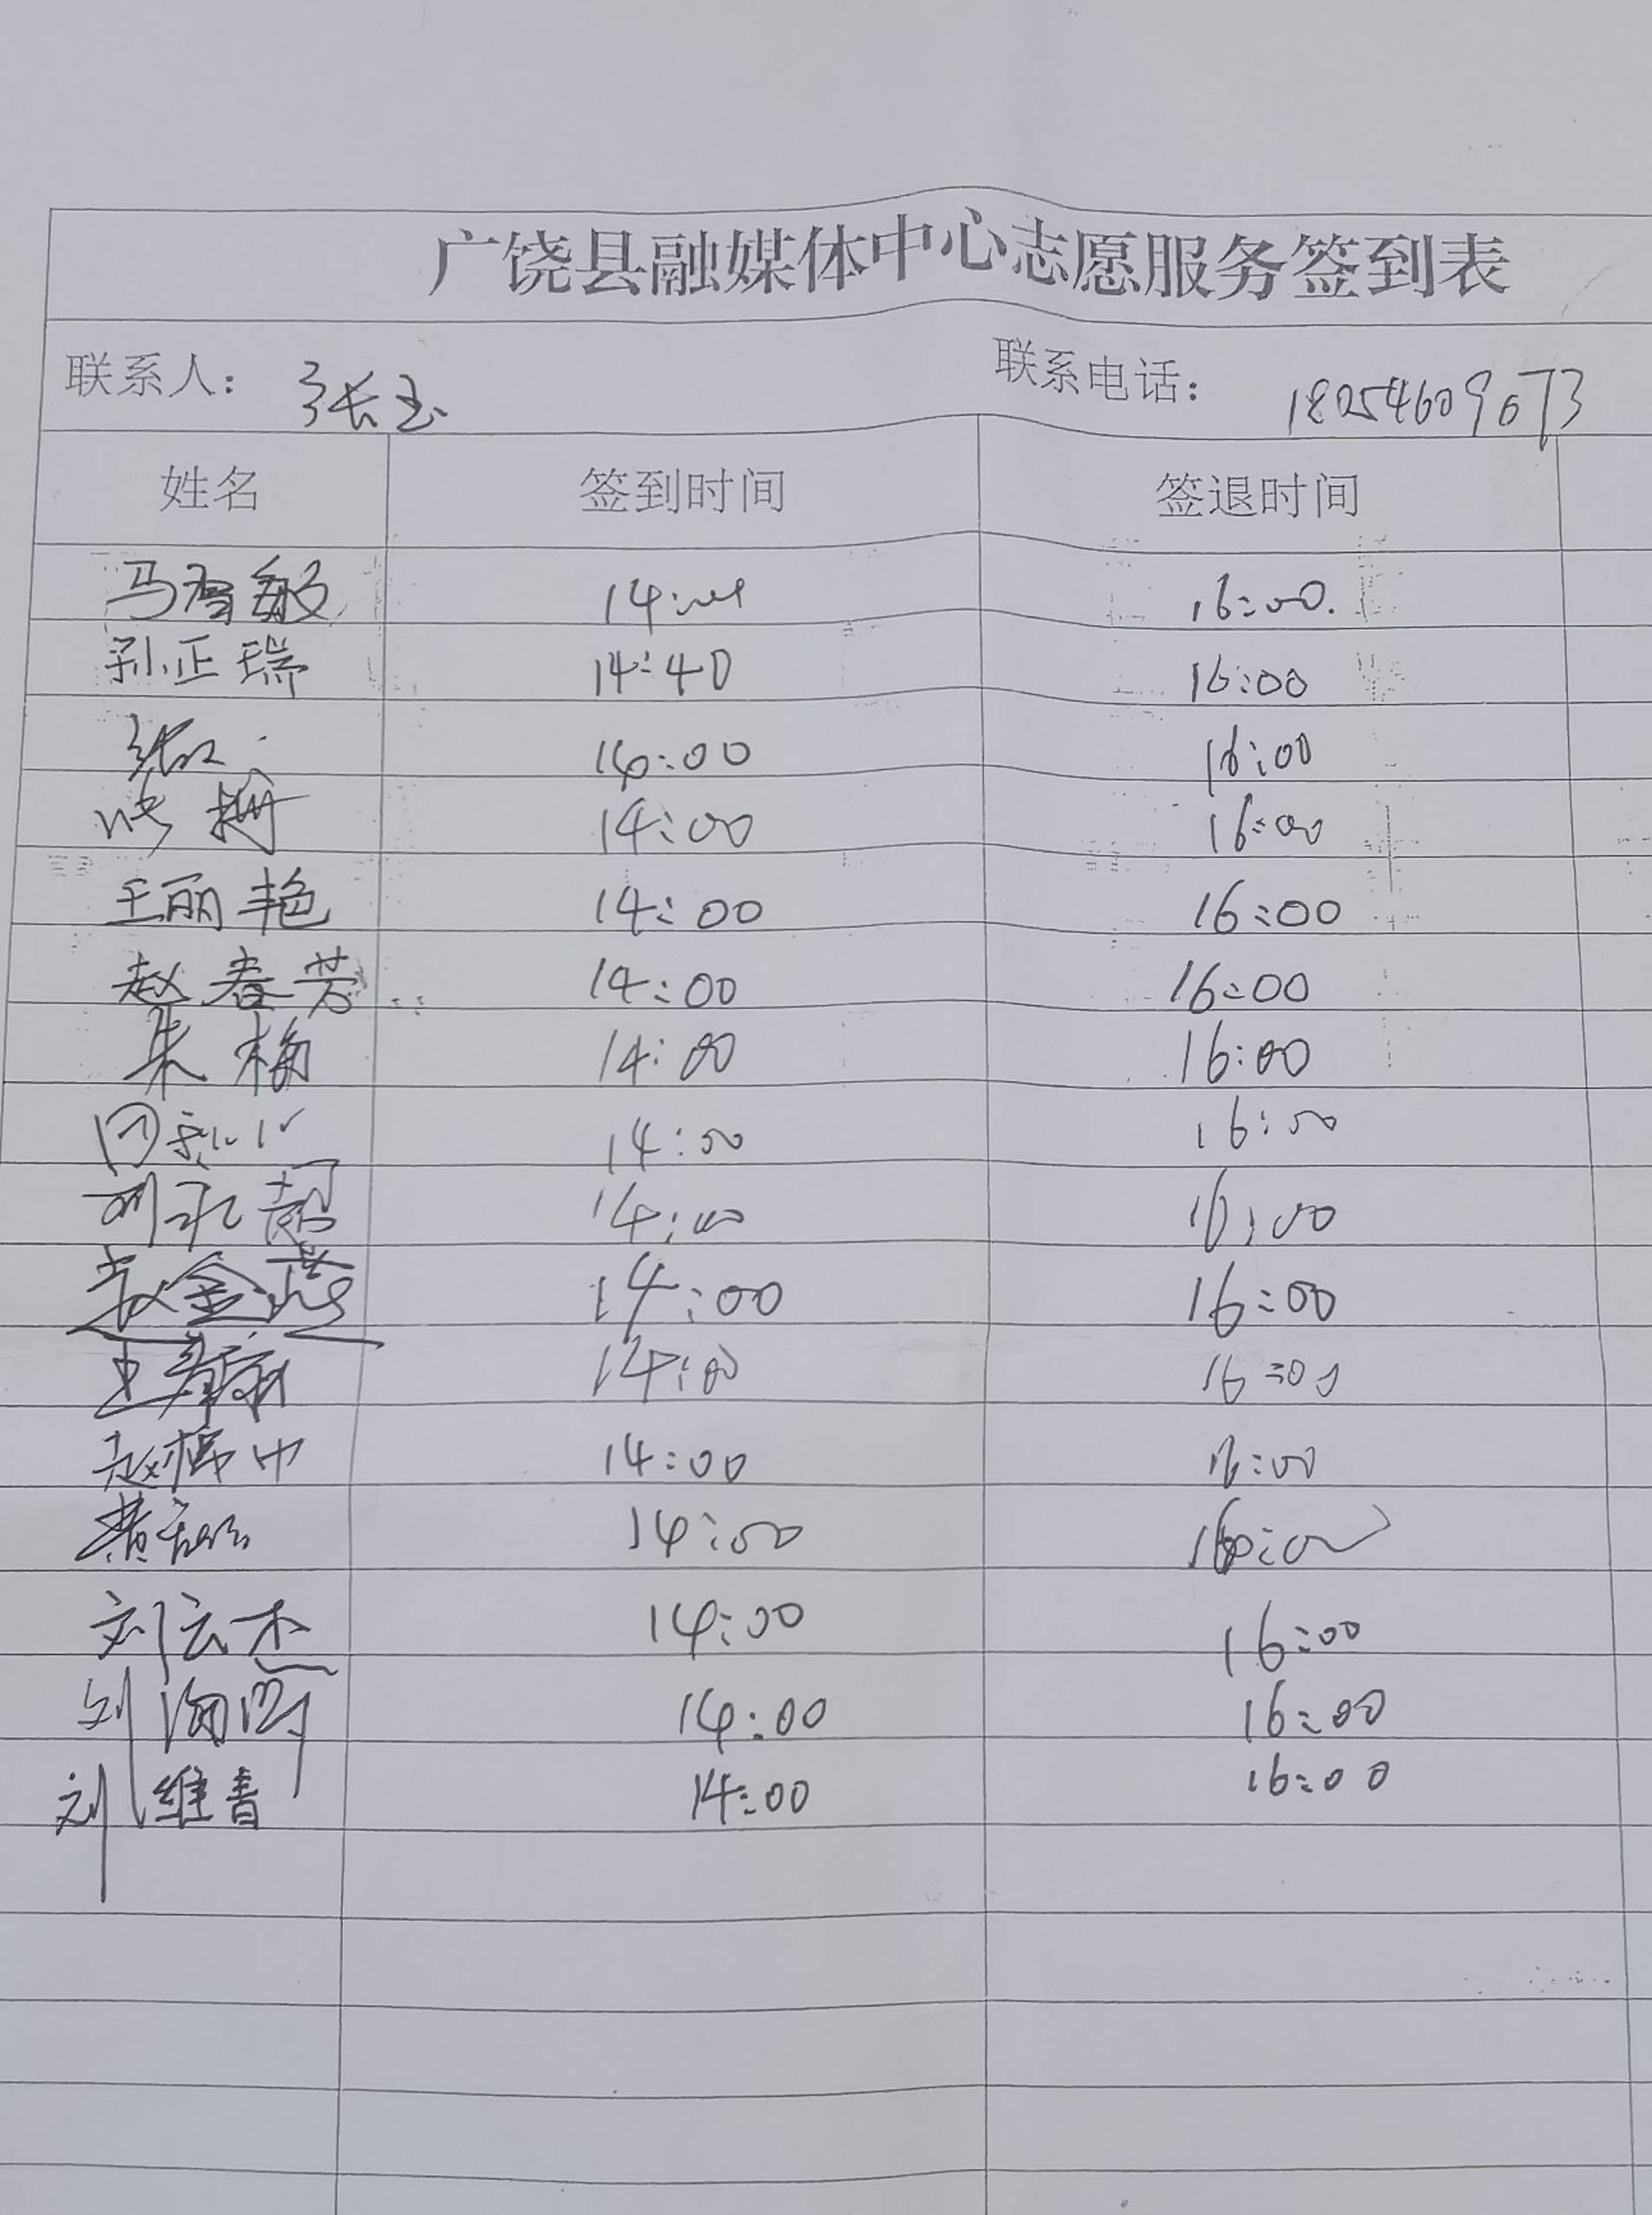 广饶县融媒体中心志愿服务签到表
联系人： 张玉 联系电话： 18054609673
姓名 签到时间 签退时间
马 敏 14:00 16:00.
孙正瑞 14:40 16:00
14:00 16:00
14:00 16:00
王丽艳 14:00 16:00
赵春芳 14:00 16:00
朱梅 14:00 16:00
14:00 16:00
刘永超 14:00 16:00
金燕 14:00 16:00
14:00 16:00
赵 中 14:00 16:00
黄 14:00 16:00
刘云杰 14:00 16:00
刘 14:00 16:00
刘维青 14:00 16:00